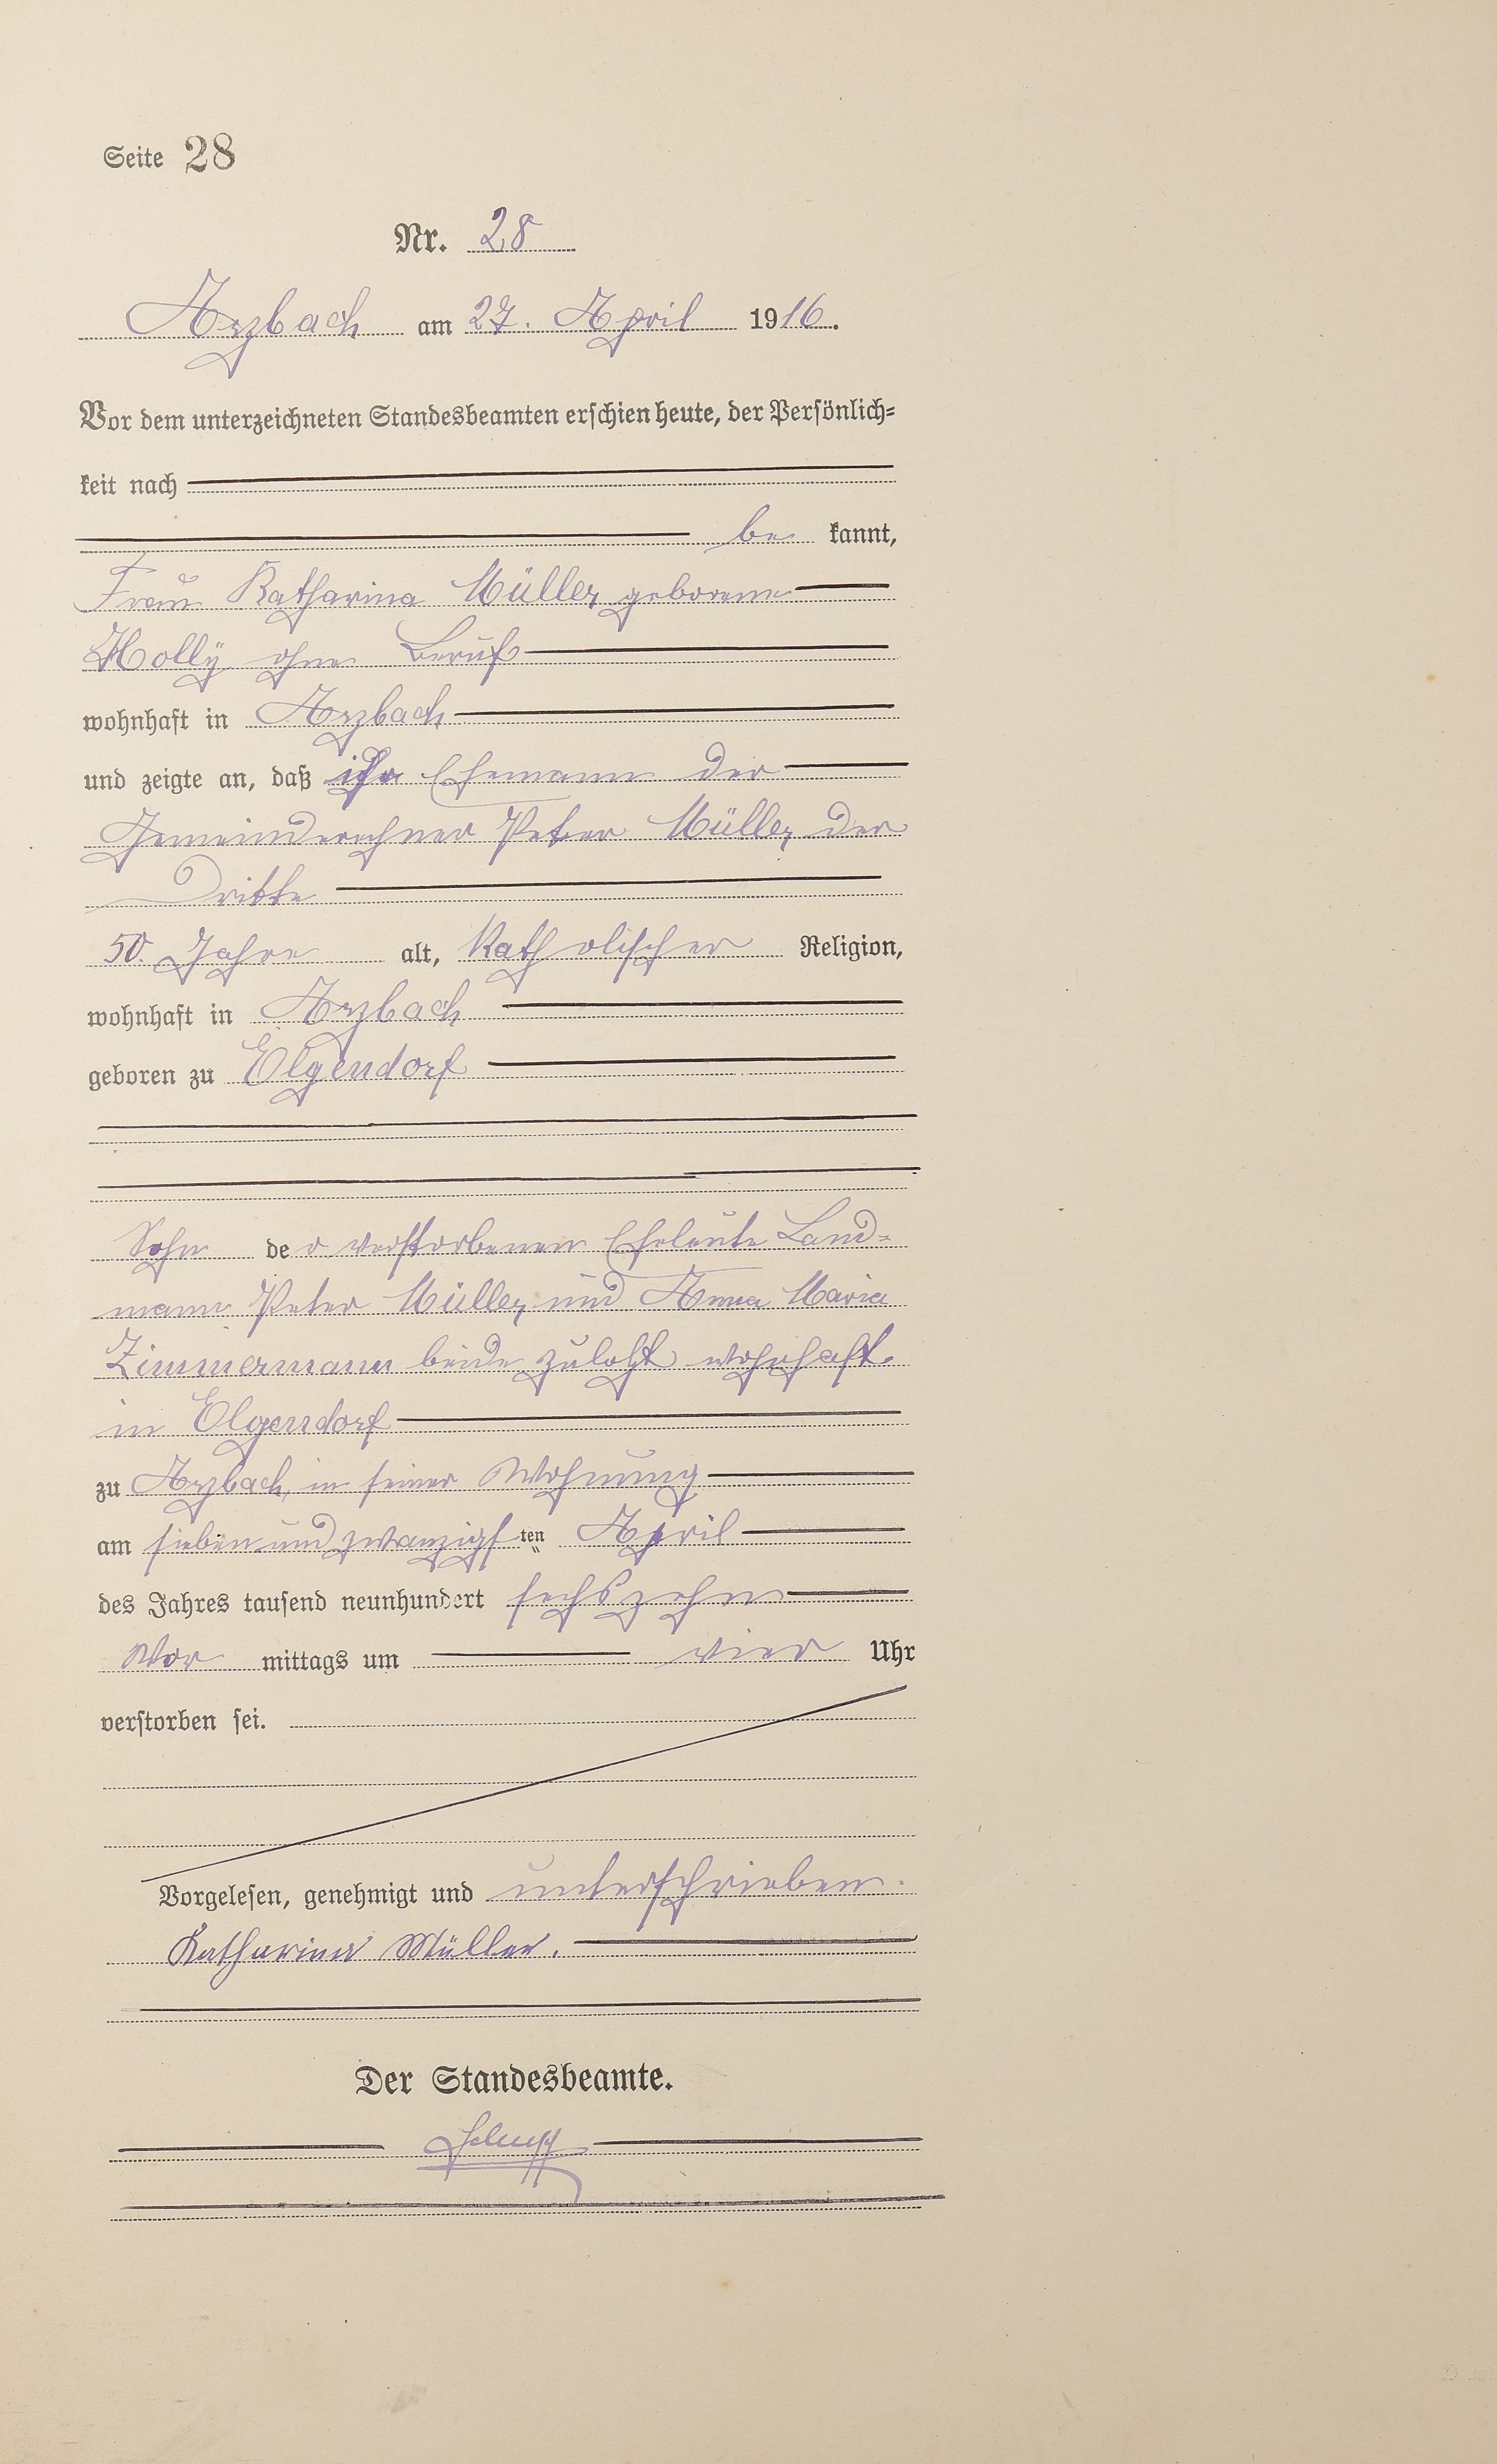 Seite 28
Nr. 28
Arzbach am 27. April 1916.
Vor dem unterzeichneten Standesbeamten erschien heute, der Persönlich=
keit nach
be kannt,
Frau Katharina Müller geborene
Holly ohne Beruf
wohnhaft in Arzbach
und zeigte an, daß ihr Ehemann der
Gemeinderechner Peter Müller der
Dritte
50. Jahre alt, Katholischer Religion,
wohnhaft in Arzbach
geboren zu Elgendorf
Sohn der verstorbenen Eheleute Land=
mann Peter Müller und Anna Maria
Zimmermann beide zuletzt wohnhaft
in Elgendorf
zu Arzbach, in seiner Wohnung
am sieben und zwanzigsten April
des Jahres tausend neunhundert sechszehn
Vor mittags um vier Uhr
verstorben sei.
Vorgelesen, genehmigt und unterschrieben.
Katharina Müller.
Der Standesbeamte.